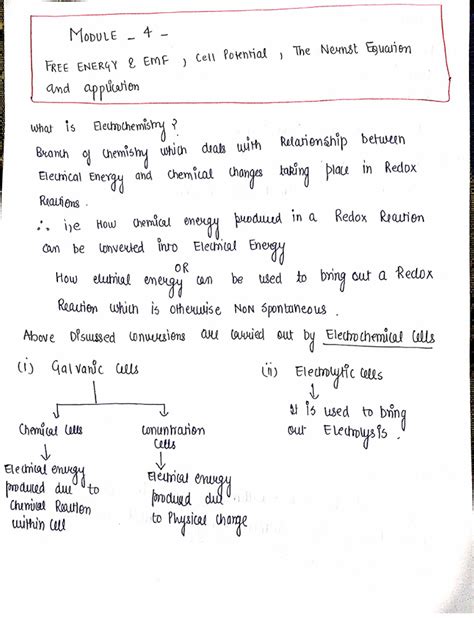 MODULE - 4 -
FREE ENERGY & EMF , Cell Potential , The Nernst Equation
and application
What is Electrochemistry ?
Branch of chemistry which deals with Relationship between
Electrical Energy and chemical changes taking place in Redox
Reactions .
∴ i,e How chemical energy produced in a Redox Reaction
can be converted into Electrical Energy
OR
How electrical energy can be used to bring out a Redox
Reaction which is otherwise NON Spontaneous .
Above Discussed conversions are carried out by Electrochemical Cells
(i) Galvanic cells
(ii) Electrolytic cells
It is used to bring
out Electrolysis .
Chemical Cells
Concentration
Cells
Electrical energy
produced due to
Chemical Reaction
within cell
Electrical energy
produced due
to Physical change